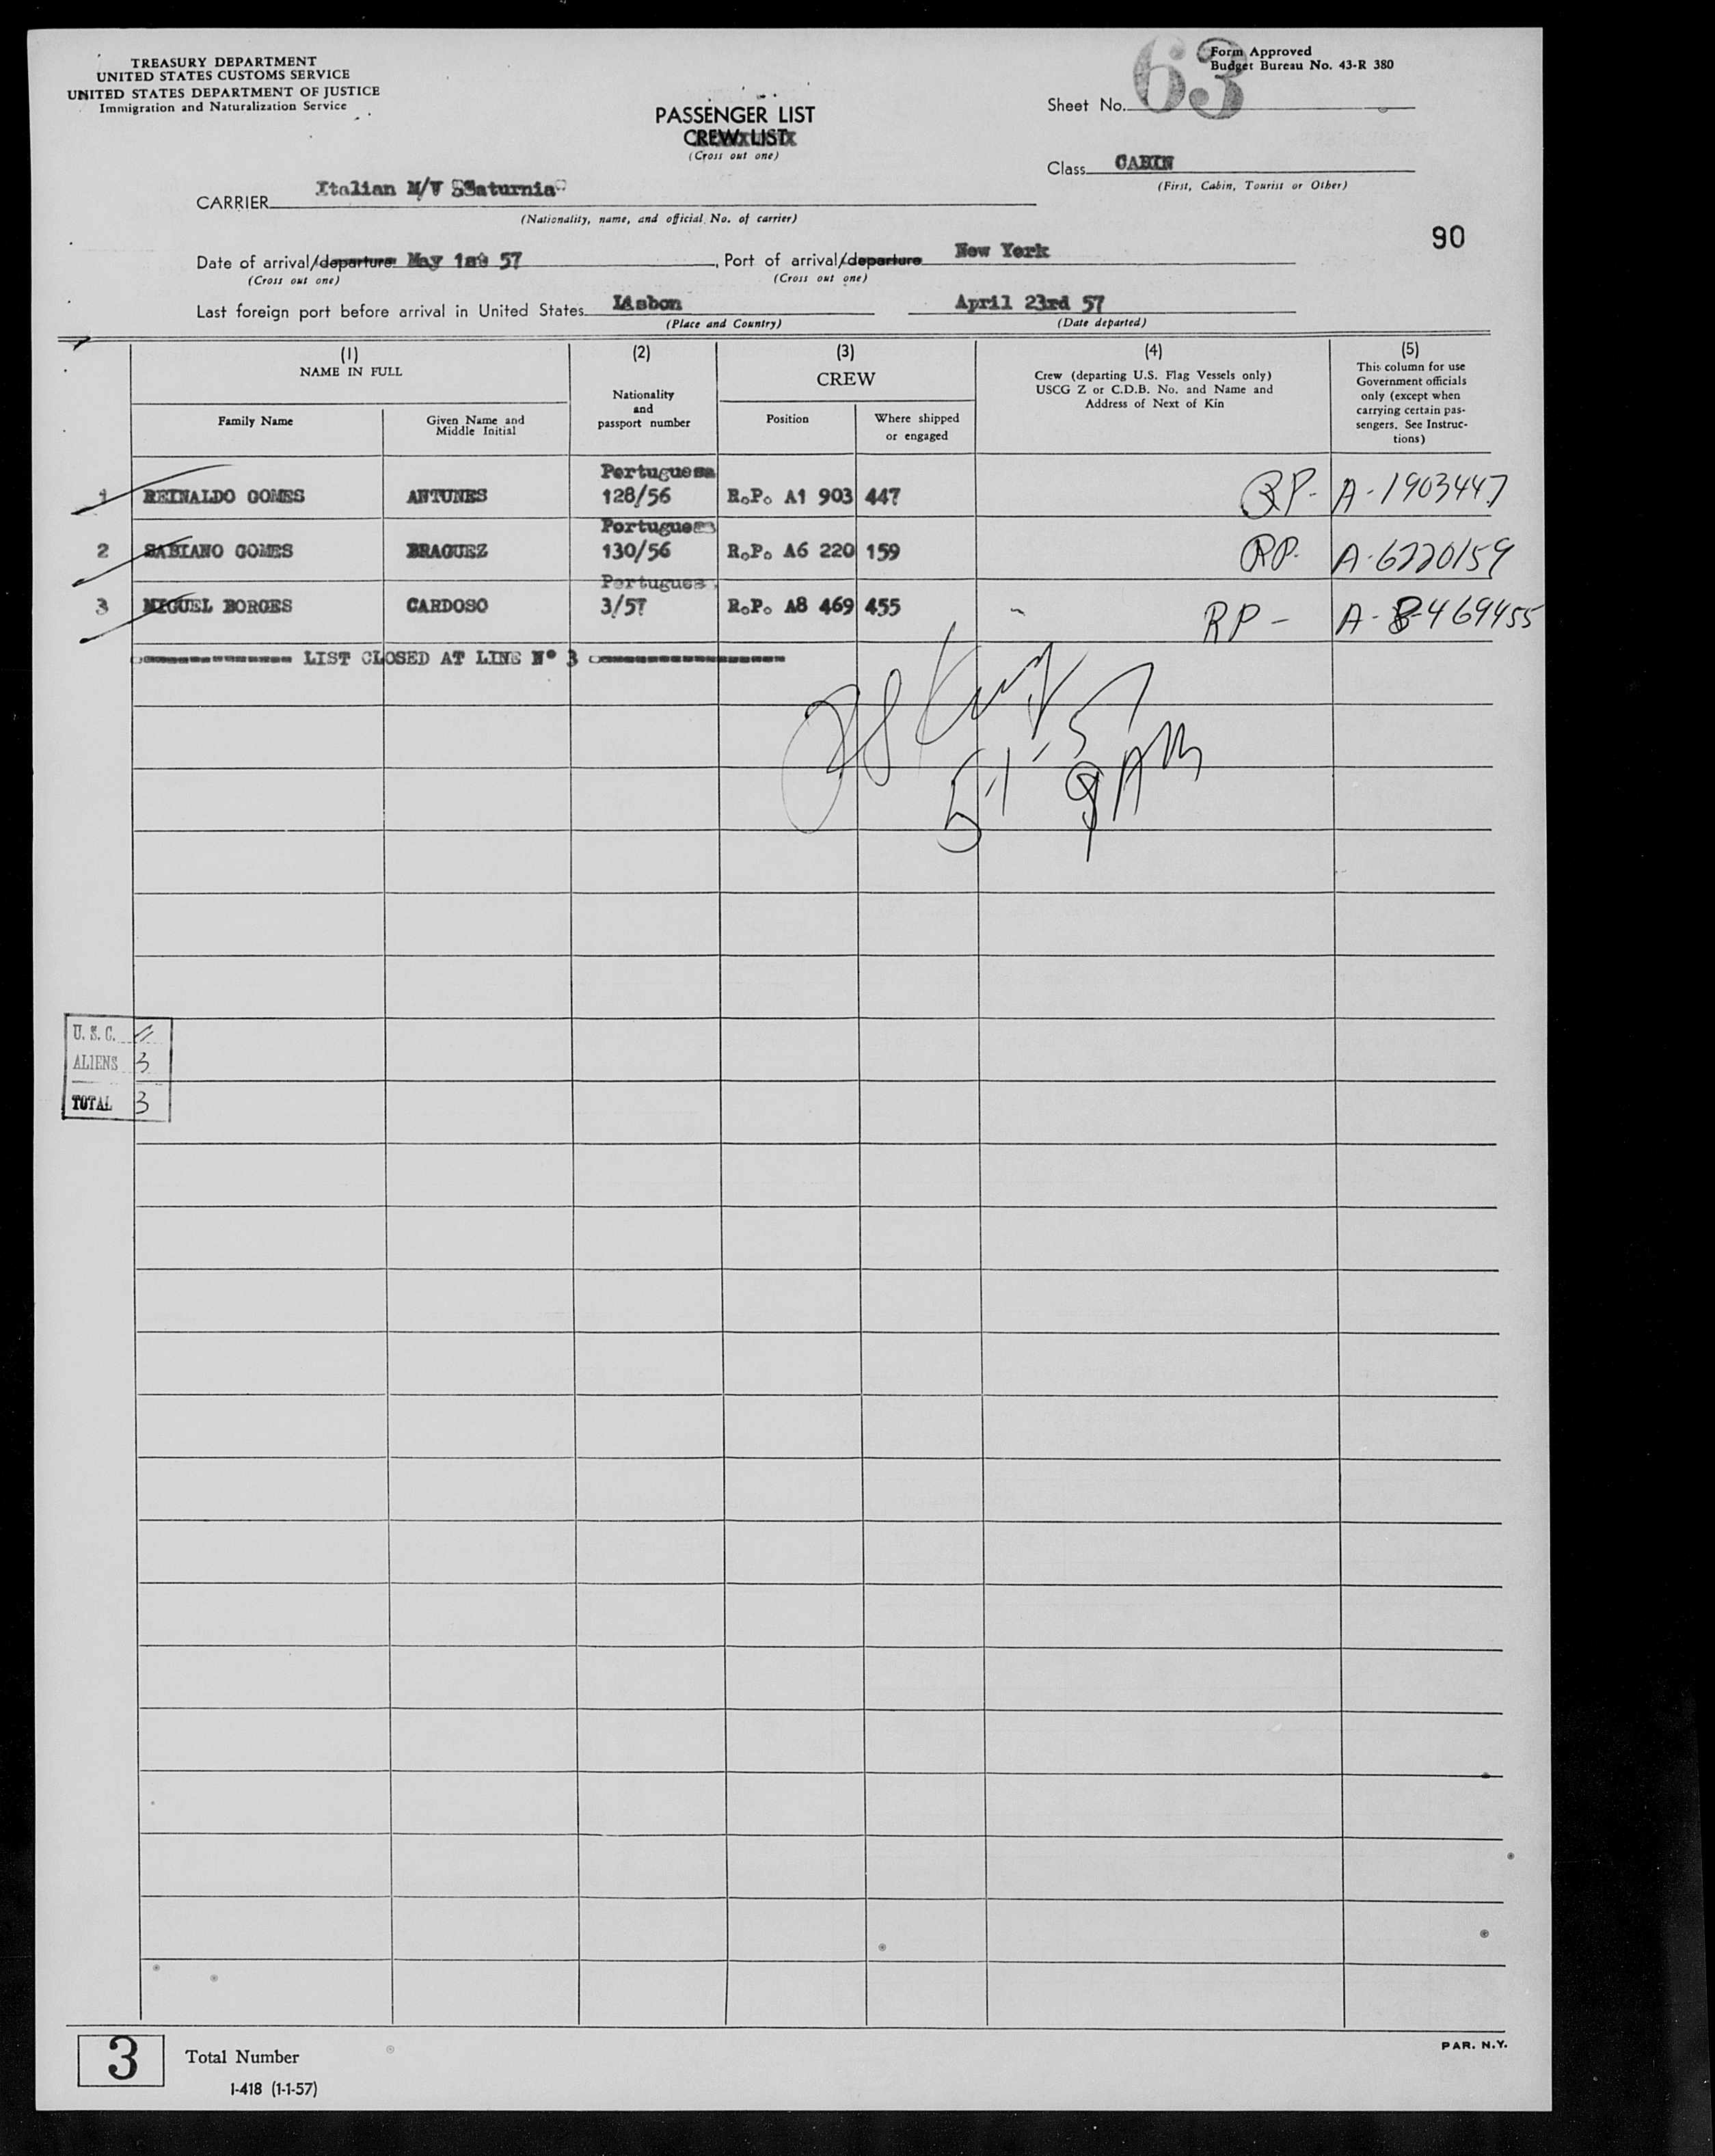 TREASURY DEPARTMENT
UNITED STATES CUSTOMS SERVICE
UNITED STATES DEPARTMENT OF JUSTICE
Immigration and Naturalization Service
Form Approved
Budget Bureau No. 43-R 380
Sheet No. 63
PASSENGER LIST
CREW LIST
(Cross out one)
Class CABIN
(First, Cabin, Tourist or Other)
CARRIER Italian M/V "Saturnia"
(Nationality, name, and official No. of carrier)
90
Date of arrival/departure May 57, Port of arrival/departure New York
(Cross out one) (Cross out one)
Last foreign port before arrival in United States Lisbon April 23rd 57
(Place and Country) (Date departed)
(1) (2) (3) (4) (5)
NAME IN FULL
Family Name
Given Name and
Middle Initial
Nationality
and
passport number
CREW
Position
Where shipped
or engaged
Crew (departing U.S. Flag Vessels only)
USCG Z or C.D.B. No. and Name and
Address of Next of Kin
This column for use
Government officials
only (except when
carrying certain pas-
sengers. See Instruc-
tions)
Portuguese
1 REINALDO GOMES ANTUNES 128/56 R.P. A1 903 447 RP- A-1903447
Portuguese
2 SABIANO GOMES BRAGUEZ 130/56 R.P. A6 220 159 RP. A-6220159
Portugues
3 MIGUEL BORGES CARDOSO 3/57 R.P. A8 469 455 RP- A-8-469455
LIST CLOSED AT LINE Nº 3
U.S.C.
ALIENS 3
TOTAL 3
3 Total Number
I-418 (1-1-57)
PAR. N.Y.